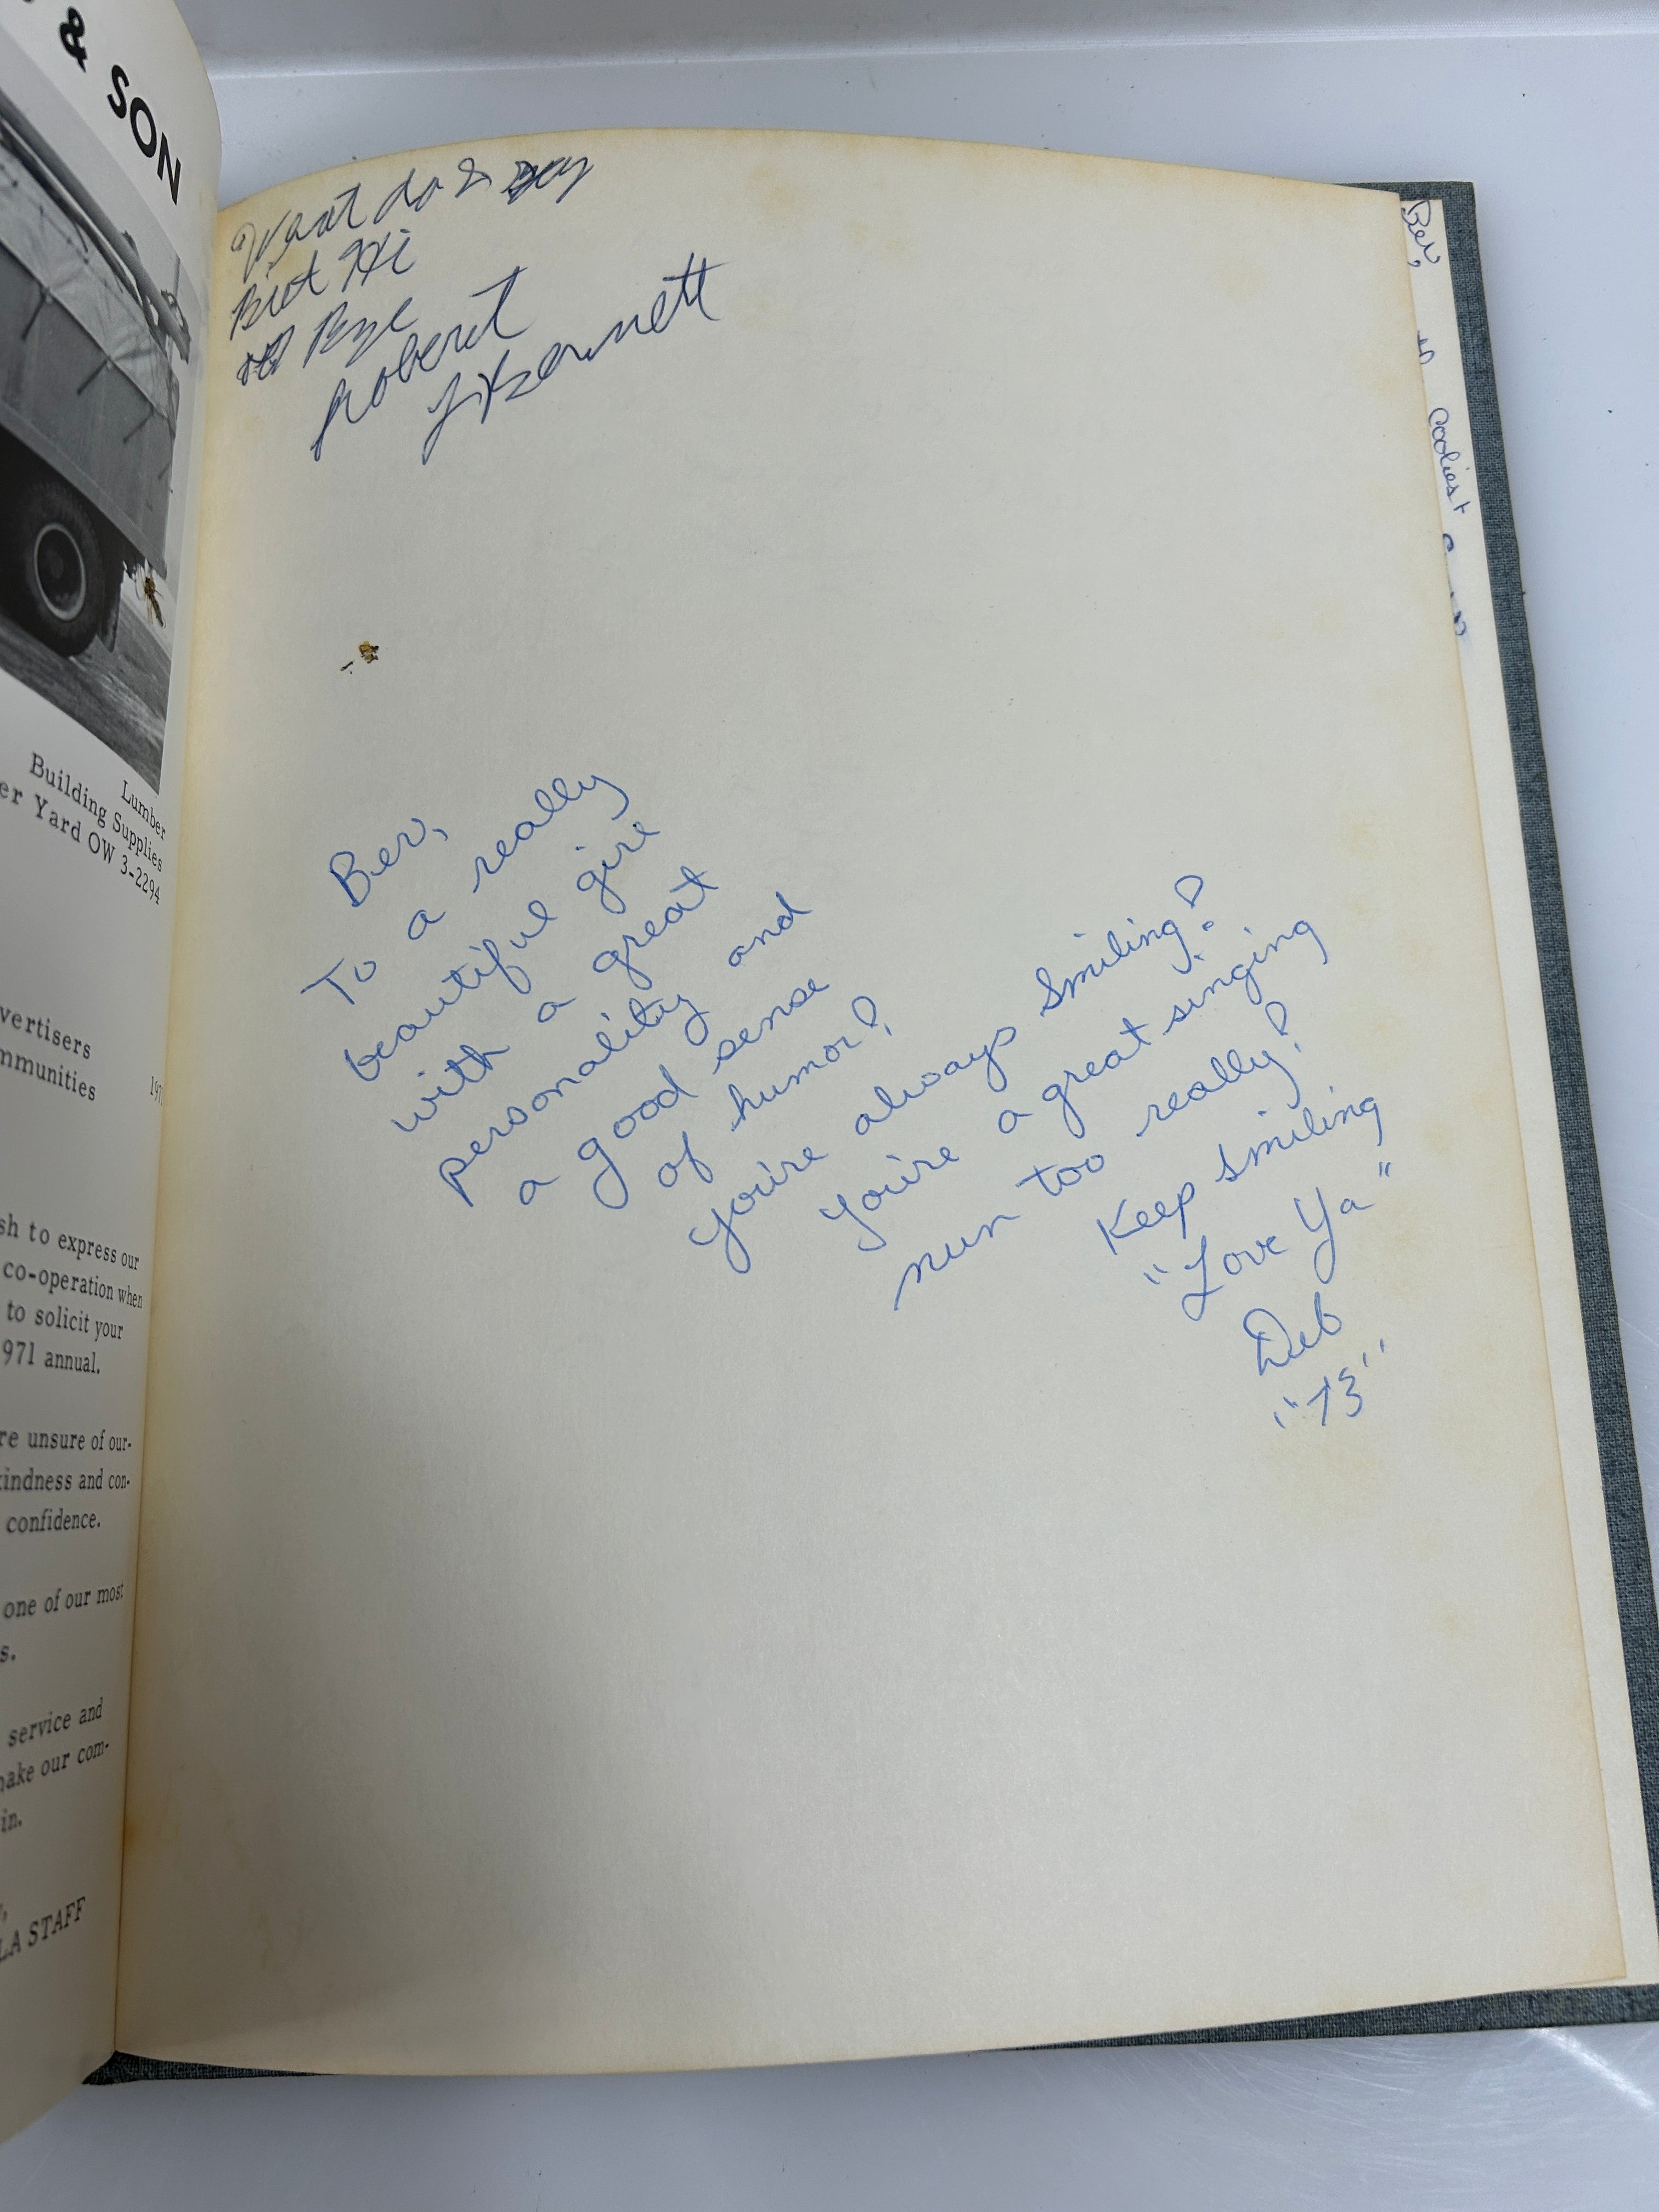 & SON
Lumber
Building Supplies
er Yard OW 3-2294
vertisers
mmunities
197
sh to express our
co-operation when
to solicit your
971 annual.
re unsure of our-
kindness and con-
confidence.
one of our most
s.
service and
make our com-
in.
LA STAFF
What do I say
But Hi
Bye
Robert
Ber,
To a really
beautiful girl
with a great
personality and
a good sense
of humor!
You're always smiling!
You're a great singing
nun too really!
Keep smiling
"Love Ya"
Deb
"73"
Ber,
coolest